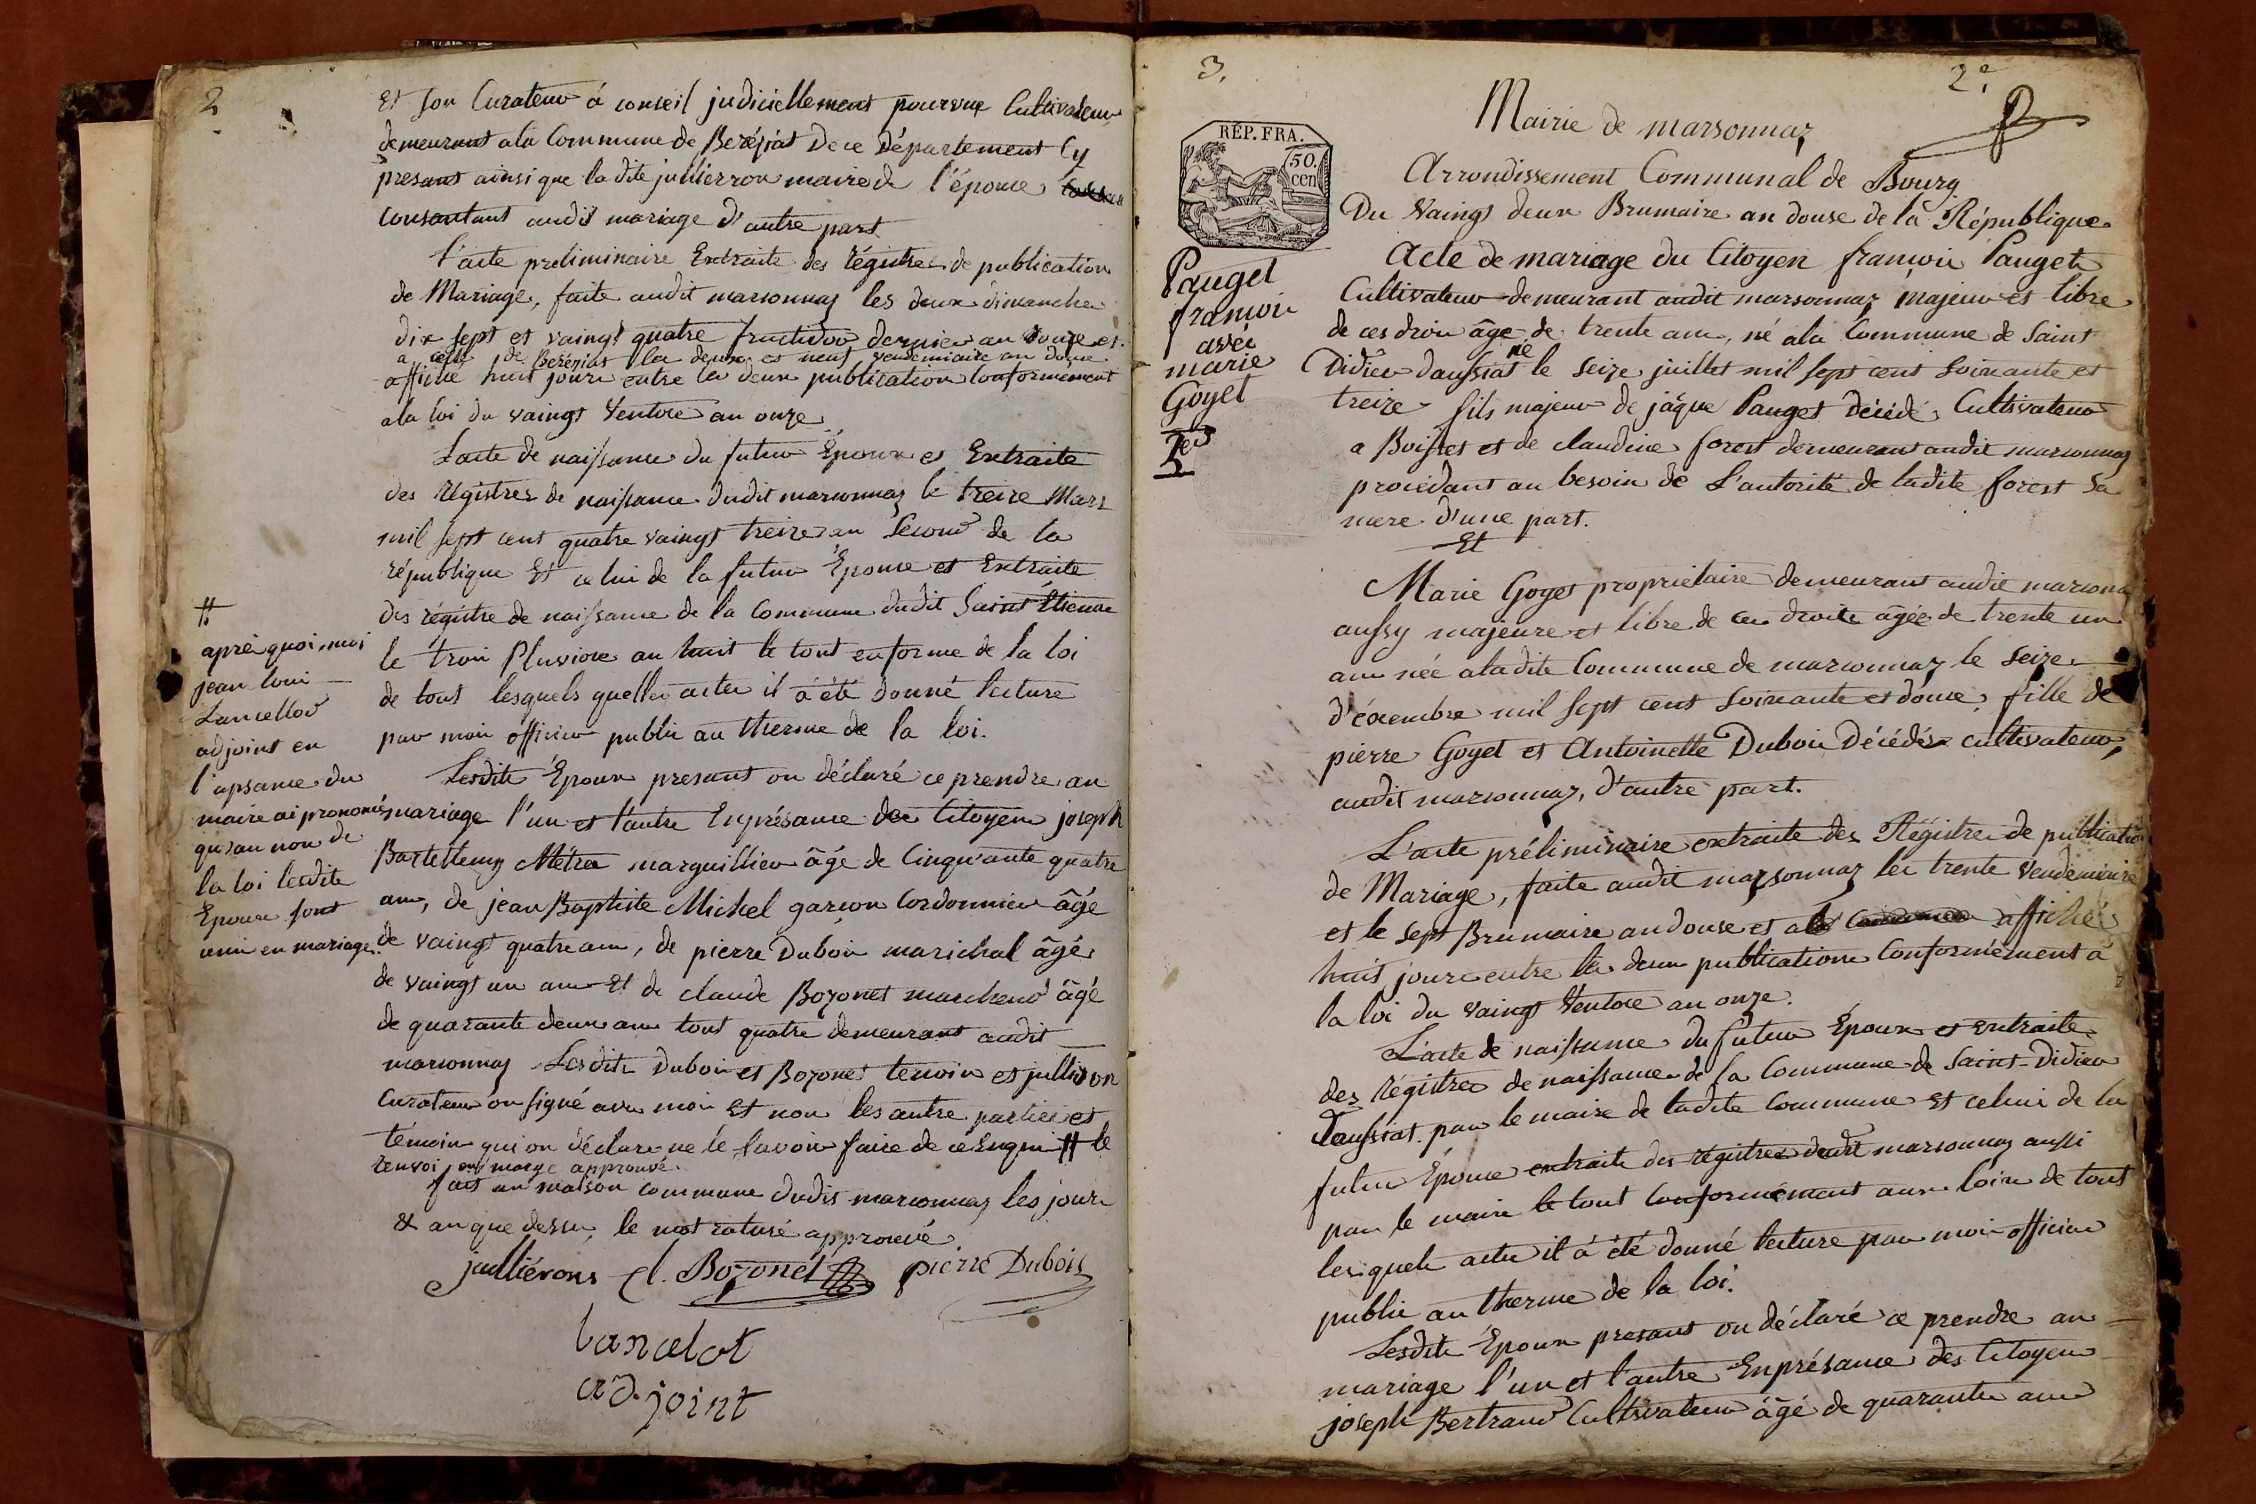 2
Et son Curateur á conseil judiciellement pourvue Cultivateur
demeurant ala Commune de Beréziat De ce Département Cy
présant ainsi que ladite jullierron maire de l'épouse
consantant audit mariage d'autre part.
l'acte preliminaire Extraite des régistres de publication
de Mariage, faite audit marsonnaz les deux dimanche
dix sept et vaingt quatre fructidor dernier an onze et
a celle de Beréziat les deux et neuf vendemiaire an douse
affiché huit jours entre les deux publication conformément
ala loi du vaingt Ventose an onze
L'acte de naissance du futur Époux et Extraite
des régistres de naissance dudit marsonnaz le treize Mars
mil sept cent quatre vaingt treize an Second de la
république Et celui de la futur Épouse et Extraite
des régistre de naissance de la Commune dudit Saint Étienne
le trois Pluviose an huit le tout enforme de la loi
de tout lesquels quelles actes il á été donné lecture
par moi officier public au therme de la loi.
Lesdits Époux presant on déclaré ce prendre an
mariage l'un et l'autre Enprésance des Citoyens joseph
Bartellemy Métra marguillier âgé de Cinquante quatre
ans, de jean Baptiste Michel garçon Cordonnier âgé
de vaingt quatre ans, de pierre Dubois marichal âgé
de vaingt un ans Et de claude Bozonet marchand âgé
de quarante deux ans tout quatre demeurant audit
marsonnaz Lesdits Dubois et Bozonet temoin et jullieron
Curateur on signé avec moi Et non les autre parties et
témoin qui on déclare ne le savoir faire de ce Enquis # le
renvoi en marge approuvé.
fait an maison commune dudit marsonnaz les jour
& an que dessu, le mot raturé approuvé
julliérons cl. Bozonet pierre Dubois
Lancelot
adjoint
#
aprè quoi, moi
jean loui
Lancellot
adjoint en
l'apsance du
maire ai prononcé
qu'au non de
la loi lesdits
Epoux sont
unie en mariage.
3.
2e.
RÉP. FRA.
50.
cen
Pauget
francois
avec
marie
Goyet
Mairie de marsonnaz
Arrondissement Communal de Bourg
Du Vaingt deux Brumaire an douse de la République
Acte de mariage du Citoyen francois Pauget
Cultivateur demeurant audit marsonnaz majeur et libre
de ces droi âgé de trente ans, né ala Commune de Saint
Didier daussiat né le seize juillet mil sept cent soixante et
treize fils majeur de jâque Pauget Décédé Cultivateur
a Boisses et de claudine forest demeurant audit marsonnaz
procédant au besoin de L'autorité de ladite forest Sa
mere d'une part.
Et
Marie Goyet propriétaire demeurant audit marsona
aussy majeure et libre de ces droits âgée de trente un
ans née aladite Commune de marsonnaz le Seize
d'écembre mil sept cent soixante et douse, fille de
pierre Goyet et Antoinette Dubois Décédés cultivateur,
audit marsonnaz, d'autre part.
L'acte préliminaire extraite des Régistre de publication
de Mariage, faite audit marsonnaz les trente Vendemiaire
et le sept Brumaire an douse et affiché
huit jours entre les deux publications Conformément á
la loi du vaingt Ventose an onze.
L'acte de naissance du futur Époux et extraite
des régistre de naissance de la Commune de Saint-Didier
Daussiat par le maire de ladite Commune Et celui de la
futur Épouse extraite des régistres dudit marsonnaz aussi
par le maire le tout Conformément aux loix de tout
lesquels actes il á été donné lecture par moi officier
public au therme de la loi.
Lesdits Époux presant on déclaré ce prendre an
mariage l'un et l'autre Enprésance des Citoyen
joseph Bertrand Cultivateur âgé de quarante ans